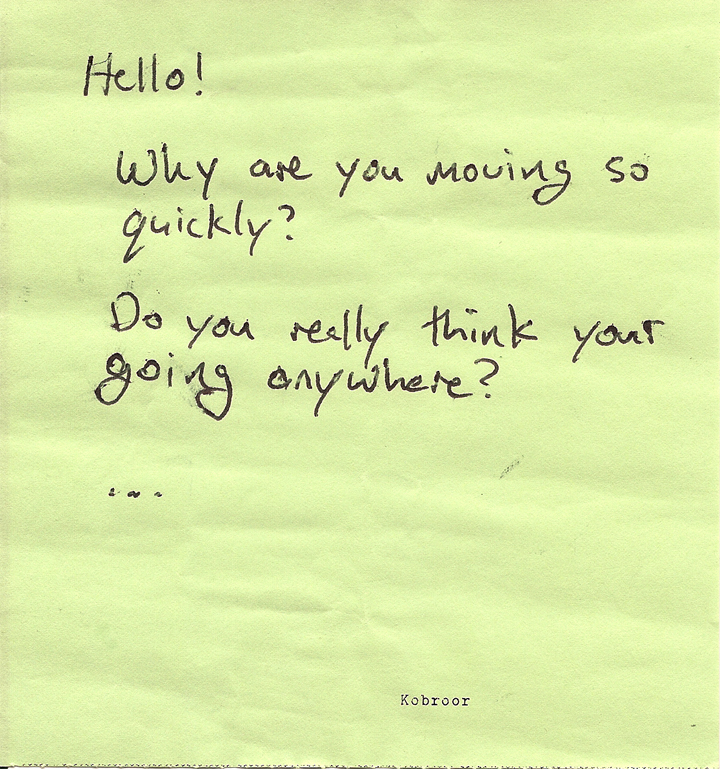 Hello!
Why are you moving so
quickly?
Do you really think your
going anywhere?
...
Kobroor